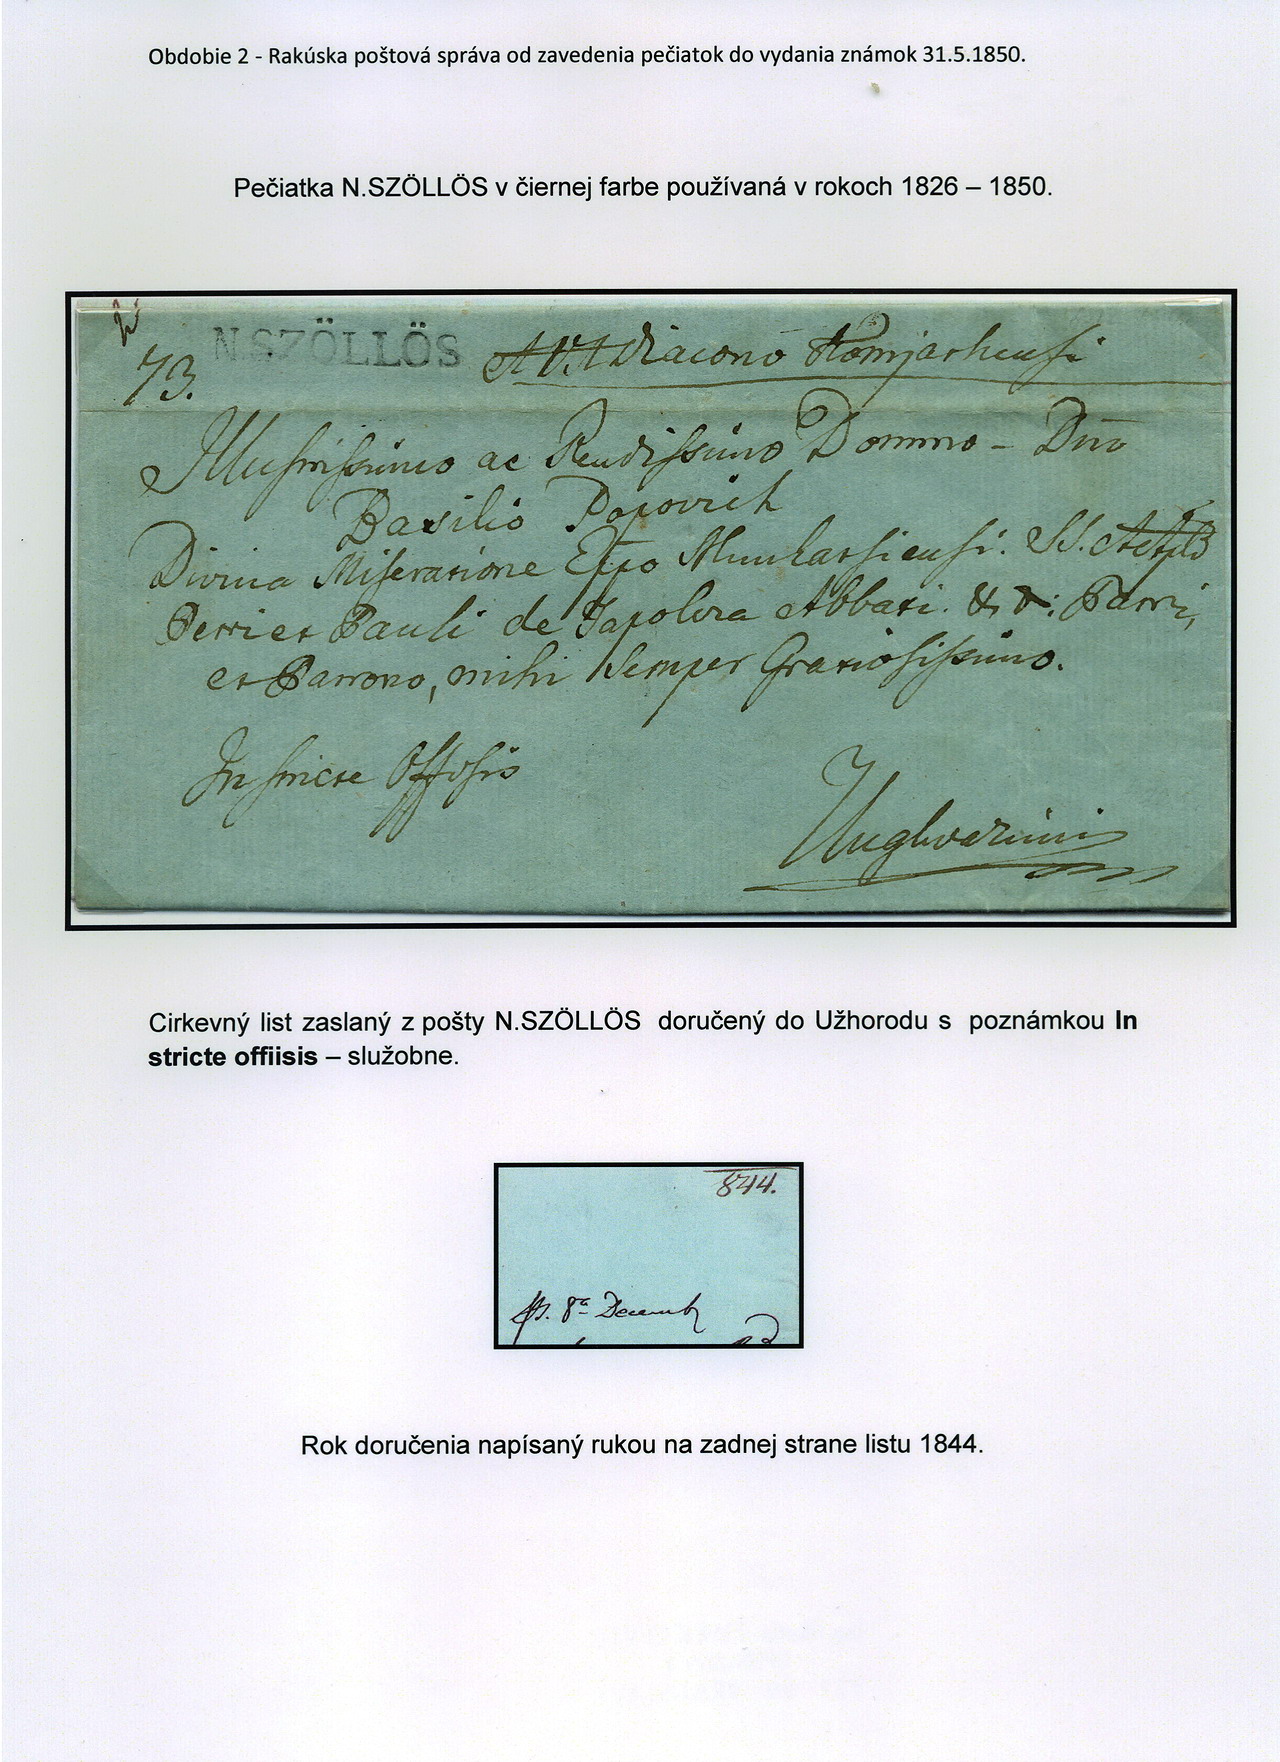 Obdobie 2 - Rakúska poštová správa od zavedenia pečiatok do vydania známok 31.5.1850.
Pečiatka N.SZÖLLÖS v čiernej farbe používaná v rokoch 1826 – 1850.
73.
N.SZÖLLÖS
A V. A Diacono Komjathensi
Illustrissimo ac Rendissimo Domino - Dno
Basilio Popovich
Divina Miseratione Eppo Munkatsiensi. SS.
Petri et Pauli de Tapolcza Abbati. & &: Patri,
et Patrono, mihi Semper Gratiosissimo.
In stricte Offosis
Unghvarini
Cirkevný list zaslaný z pošty N.SZÖLLÖS doručený do Užhorodu s poznámkou In
stricte offiisis – služobne.
844.
8a Decemb
Rok doručenia napísaný rukou na zadnej strane listu 1844.